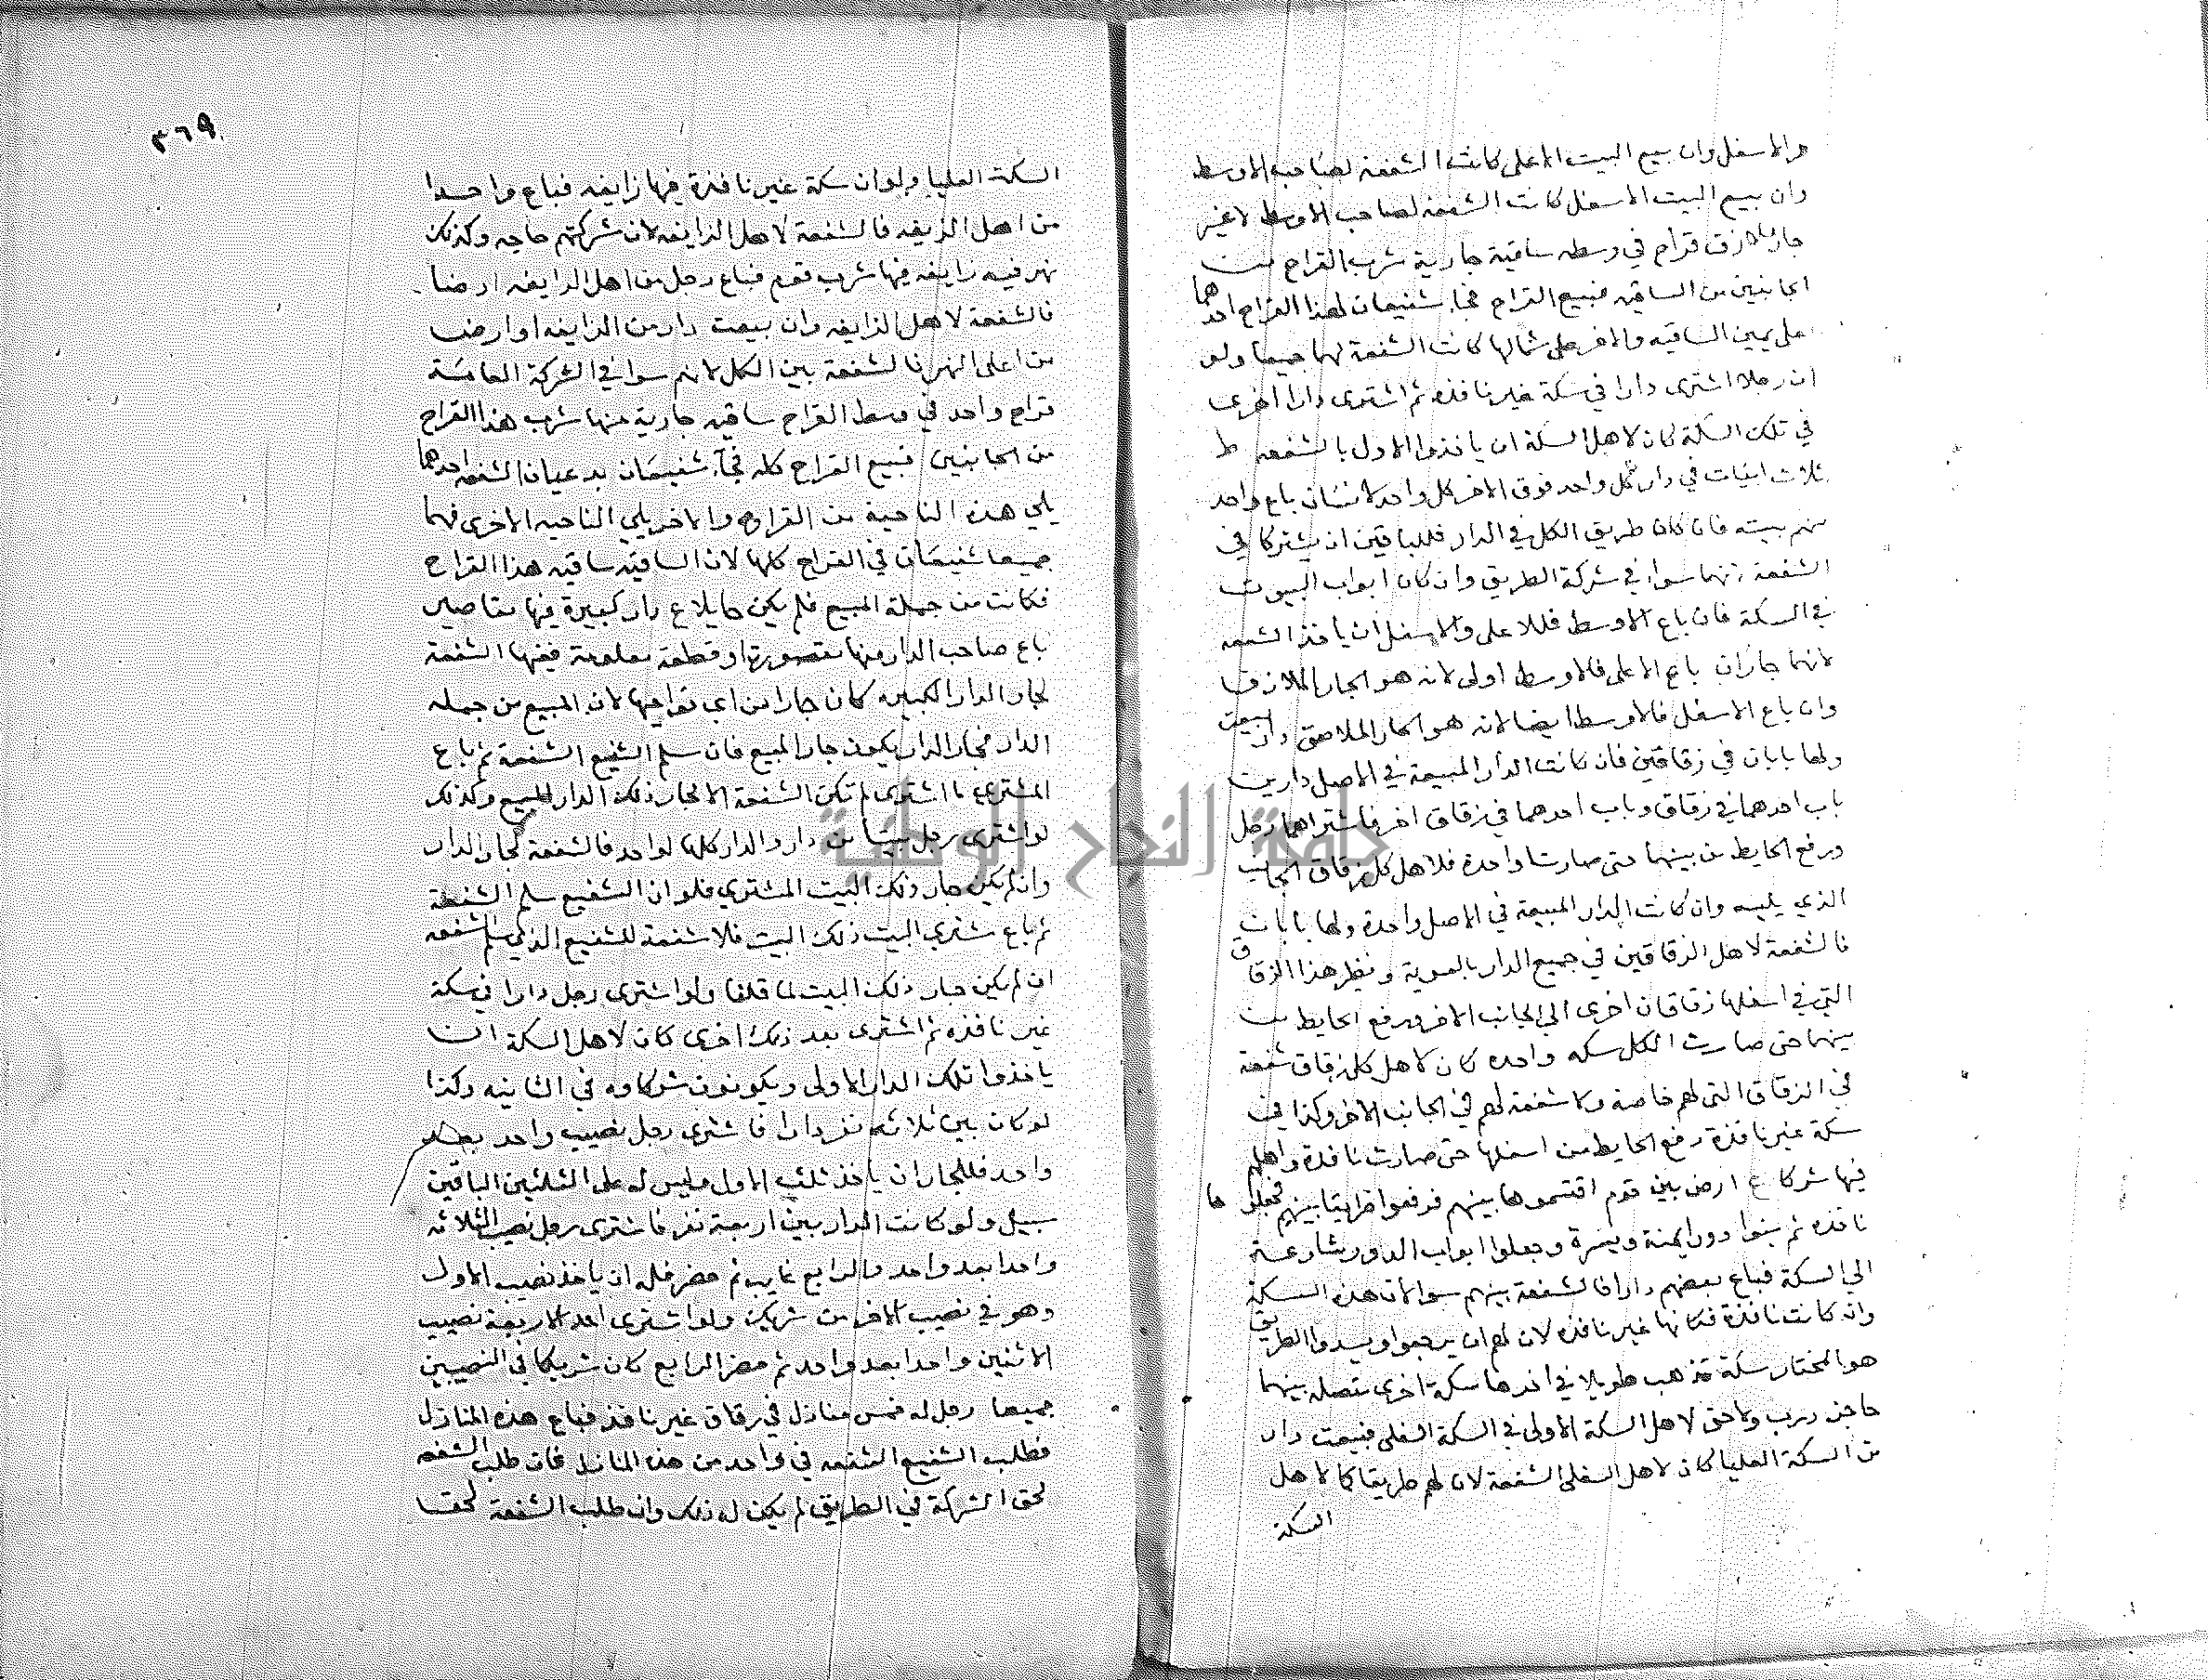 والاسفل وان بيع البيت الاعلى كانت الشفعة لصاحب الاوسط
وان بيع البيت الاسفل كانت الشفعة لصاحب الاوسط لا غير
جار ملازق قراح في وسطه ساقية جارية شرب القراح من
الجانبين من الساقيه فبيع القراح فجا شفيعان لهذا القراح احدهما
على يمين الساقيه والاخر على شمالها كانت الشفعة لهما جميعا ولو
ان رجلا اشترى دارا في سكة غير نافذه ثم اشترى دارا اخرى
في تلك السكة كان لاهل السكة ان ياخذوا الاول بالشفعه ط
ثلاث ابيات في دار كل واحد فوق الاخر كل واحد لانسان باع واحد
منهم بيته فان كان طريق الكل في الدار فللباقين ان يشتركا في
الشفعة انهما سوا في شركة الطريق وان كان ابواب البيوت
في السكة فان باع الاوسط فللاعلى والاسفل ان ياخذ الشفعه
لانهما جاران باع الاعلى فالاوسط اولى لانه هو الجار الملازق
وان باع الاسفل فالاوسط ايضا لانه هو الجار الملاصق دار بيعت
ولها بابان في زقاقين فان كانت الدار المبيعة في الاصل دارين
باب احدهما في زقاق وباب احدهما في زقاق اخر فاشتراهما رجل
ورفع الحايط من بينهما حتى صارتا واحدة فلاهل كل زقاق الجانب
الذي يليه وان كانت الدار المبيعة في الاصل واحدة ولها بابان
فالشفعة لاهل الزقاقين في جميع الدار بالسوية ونظير هذا الزقاق
التي في اسفلها زقاقان اخرى الى الجانب الاخر ورفع الحايط من
بينهما حتى صارت الكل سكه واحده كان لاهل كل زقاق شفعة
في الزقاق التي لهم خاصة ولا شفعة لهم في الجانب الاخر وكذا في
سكة غير نافذة رفع الحايط من اسفلها حتى صارت نافذة واهلها
فيها شركا ع ارض بين قوم اقتسموها بينهم فرفعوا طريقا بينهم فجعلوها
نافذه ثم بنوا دورا يمنة ويسرة وجعلوا ابواب الدور شارعة
الى السكة فباع بعضهم دارا فالشفعة بينهم سوا لان هذه السكة
وان كانت نافذة فكانها غير نافذه لان لهم ان يرجعوا ويسدوا الطريق
هو المختار سكة تذهب طويلا في اخرها سكة اخرى متصله بينهما
حاجز درب ولا حق لاهل السكة الاولى في السكة السفلى فبيعت دار
من السكة العليا كان لاهل السفلى الشفعة لان لهم طريقا كما لاهل
السكة
٣٦٩
السكة العليا ولو ان سكة غير نافذة فيها زايغه فباع واحدا
من اهل الزيغه فالشفعة لاهل الزايغه لان شركتهم خاصه وكذلك
نهر فيه زايغه فيها شرب قوم فباع رجل من اهل الزايغه ارضا
فالشفعة لاهل الزايغه وان بيعت دار من الزايغه او ارض
من اعلى النهر فالشفعة بين الكل لانهم سوا في الشركة العامة
قراح واحد في وسط القراح ساقيه جارية منها شرب هذا القراح
من الجانبين فبيع القراح كله فجآء شفيعان يدعيان الشفعه احدهما
يلي هذه الناحية من القراح والاخر يلي الناحيه الاخرى فهما
جميعا شفيعان في القراح كلها لان الساقيه ساقيه هذا القراح
فكانت من جملة المبيع فلم يكن حايلا ع دار كبيرة فيها مقاصير
باع صاحب الدار منها مقصورة او قطعة معلومة ففيها الشفعة
لجار الدار الكبيره كان جارا من اي نواحيها لان المبيع من جملة
الدار فجار الدار يكون جار المبيع فان سلم الشفيع الشفعة ثم باع
المشتري ما اشترى لم تكن الشفعة الا لجار ذلك الدار المبيع وكذلك
لو اشترى رجل بيتا من دار والدار كلها لواحد فالشفعة لجار الدار
وان لم يكن جار ذلك البيت المشتري فلو ان الشفيع سلم الشفعة
ثم باع مشتري البيت ذلك البيت فلا شفعة للشفيع الذي سلم الشفعه
ان لم يكن جار ذلك البيت لما قلنا ولو اشترى رجل دارا في سكة
غير نافذه ثم اشترى بعد ذلك اخرى كان لاهل السكة ان
ياخذوا تلك الدار الاولى ويكونون شركاوه في الثانيه وكذا
لو كان بين ثلاثه نفر دارا فاشترى رجل نصيب واحد بعد
واحد فللجار ان ياخذ ثلث الاول وليس له على الثلثين الباقين
سبيل ولو كانت الدار بين اربعة نفر فاشترى رجل نصيب الثلاثه
واحدا بعد واحد والرابع غايب ثم حضر فله ان ياخذ نصيب الاول
وهو في نصيب الاخرين شريك ولو اشترى احد الاربعة نصيب
الاثنين واحدا بعد واحد ثم حضر الرابع كان شريكا في النصيبين
جميعا رجل له خمس منازل في زقاق غير نافذ فباع هذه المنازل
فطلب الشفيع الشفعه في واحد من هذه المنازل فان طلب الشفعه
لحق الشركة في الطريق لم يكن له ذلك وان طلب الشفعة لحق
جامعة النجاح الوطنية